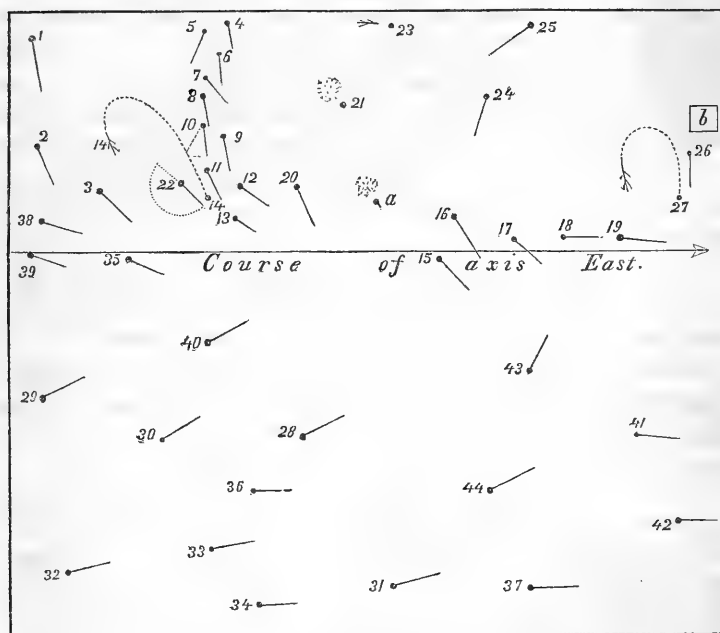 1
5 4
23
25
6
7
8
24
21
b
10
9
2
14
26
11
3
22
12
20
a
14
27
38
13
16
17
18
19
39
35
Course of axis East.
15
40
43
29
30
28
41
36
44
42
33
32
31
37
34